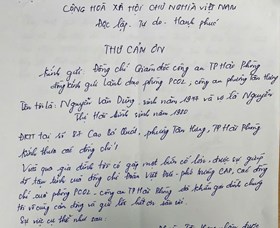 CỘNG HOÀ XÃ HỘI CHỦ NGHĨA VIỆT NAM
Độc lập - Tự do - Hạnh phúc
THƯ CẢM ƠN
Kính gửi: Đồng chí Giám đốc công an TP Hải Phòng
đồng kính gửi lãnh đạo phòng PC02, công an phường Tân Hưng
Tên tôi là: Nguyễn Văn Dũng sinh năm 1977 và vợ là Nguyễn
Thị Hoà sinh năm 1980
ĐKTT tại số 87 Cao Bá Quát, phường Tân Hưng, TP Hải Phòng
Kính thưa các đồng chí!
Vừa qua gia đình tôi có gặp một biến cố lớn, được sự giúp
đỡ tận tình của đồng chí Đoàn Việt Dũng - phó trưởng CAP, các đồng
chí của phòng PC02 - công an TP Hải Phòng đã khiến gia đình chúng
tôi vô cùng cảm động và biết ơn sâu sắc.
Sự việc cụ thể như sau: